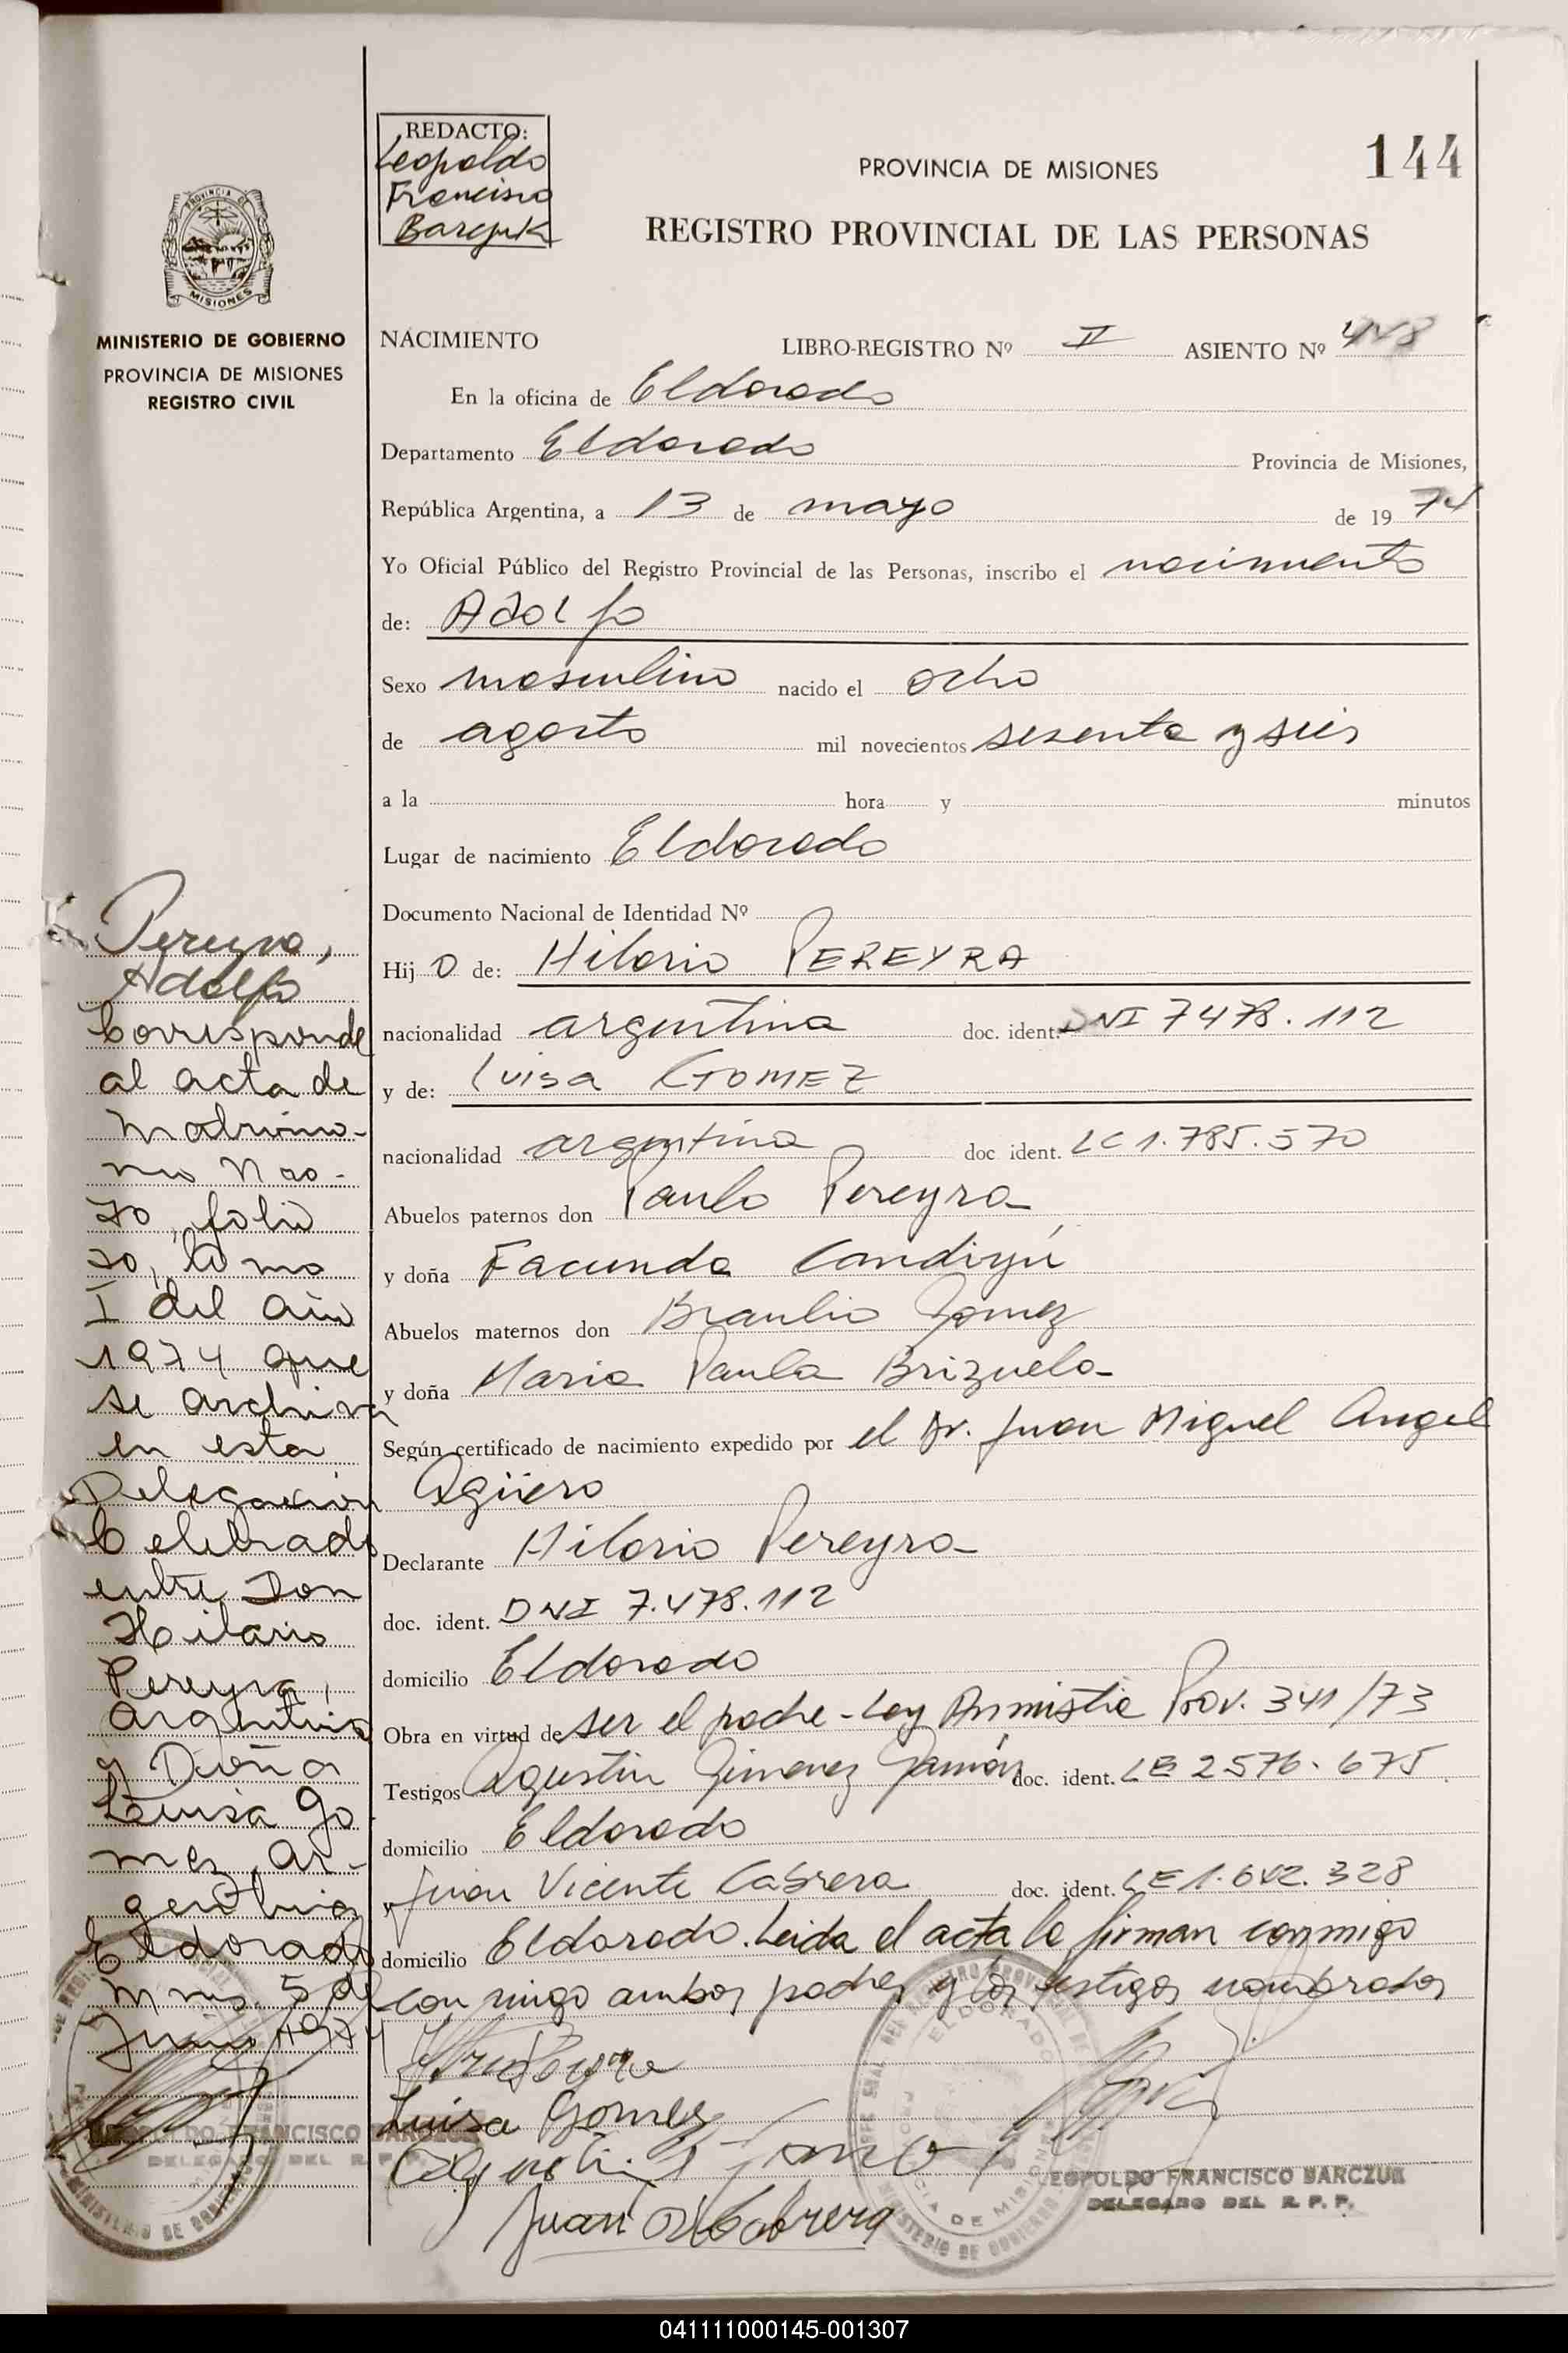 144
REDACTO:
Leopoldo
Francisco
Barczuk
PROVINCIA DE MISIONES
REGISTRO PROVINCIAL DE LAS PERSONAS
PROVINCIA DE
MISIONES
MINISTERIO DE GOBIERNO
PROVINCIA DE MISIONES
REGISTRO CIVIL
NACIMIENTO LIBRO-REGISTRO Nº II ASIENTO Nº
En la oficina de Eldorado
Departamento Eldorado Provincia de Misiones,
República Argentina, a 13 de mayo de 19 74
Yo Oficial Público del Registro Provincial de las Personas, inscribo el nacimiento
de: Adolfo
Sexo masculino nacido el ocho
de agosto mil novecientos sesenta y seis
a la hora y minutos
Lugar de nacimiento Eldorado
Documento Nacional de Identidad Nº
Hij o de: Hilario PEREYRA
nacionalidad argentina doc. ident. DNI 7478.112
y de: Luisa GOMEZ
nacionalidad argentina doc ident. LC 1.785.570
Abuelos paternos don Paulo Pereyra
y doña Facunda Candiyú
Abuelos maternos don Braulio Gomez
y doña Maria Paula Brizuela
Según certificado de nacimiento expedido por el Dr. Juan Miguel Angel
Agüero
Declarante Hilario Pereyra
doc. ident. DNI 7.478.112
domicilio Eldorado
Obra en virtud de ser el padre - Ley Amnistia Prov. 341/73
Testigos Agustin Gimenez doc. ident. LE 2576.675
domicilio Eldorado
y Juan Vicente Cabrera doc. ident. LE 1.642.328
domicilio Eldorado. Leida el acta la firman conmigo
con migo ambos padres y los testigos nombrados
Luisa Gomez
Juan V Cabrera
LEOPOLDO FRANCISCO BARCZUK
DELEGADO DEL R. P. P.
Pereyra,
Adolfo
Corresponde
al acta de
matrimo-
nio Nro-
70, folio
70, tomo
I del año
1974 que
se archiva
en esta
Delegación
Celebrado
entre Don
Hilario
Pereyra,
Argentino
y Doña
Luisa Go
mez, ar-
gentina
Eldorado
Mnes. 5 de
Junio 1974
LEOPOLDO FRANCISCO BARCZUK
DELEGADO DEL R. P. P.
MINISTERIO DE GOBIERNO
ELDORADO
041111000145-001307